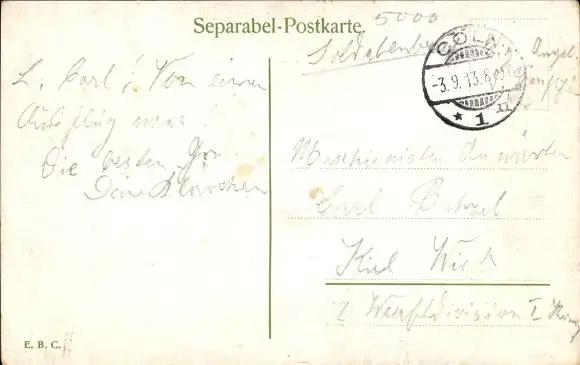 Separabel-Postkarte.
5000
Soldatenbr
CÖLN
-3.9.13.8-9
* 1 n
L. Carl! Von einem
Ausflug
Die besten Gr.
Dein Klärchen
Maschienisten Anwärter
Carl
Kiel Wiek
I Werftdivision I
E. B. C.